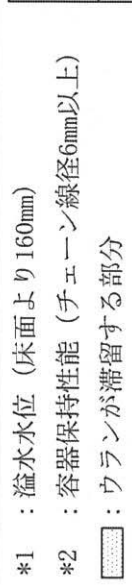 *1 ：溢水水位（床面より160mm）
*2 ：容器保持性能（チェーン線径6mm以上）
：ウランが滞留する部分